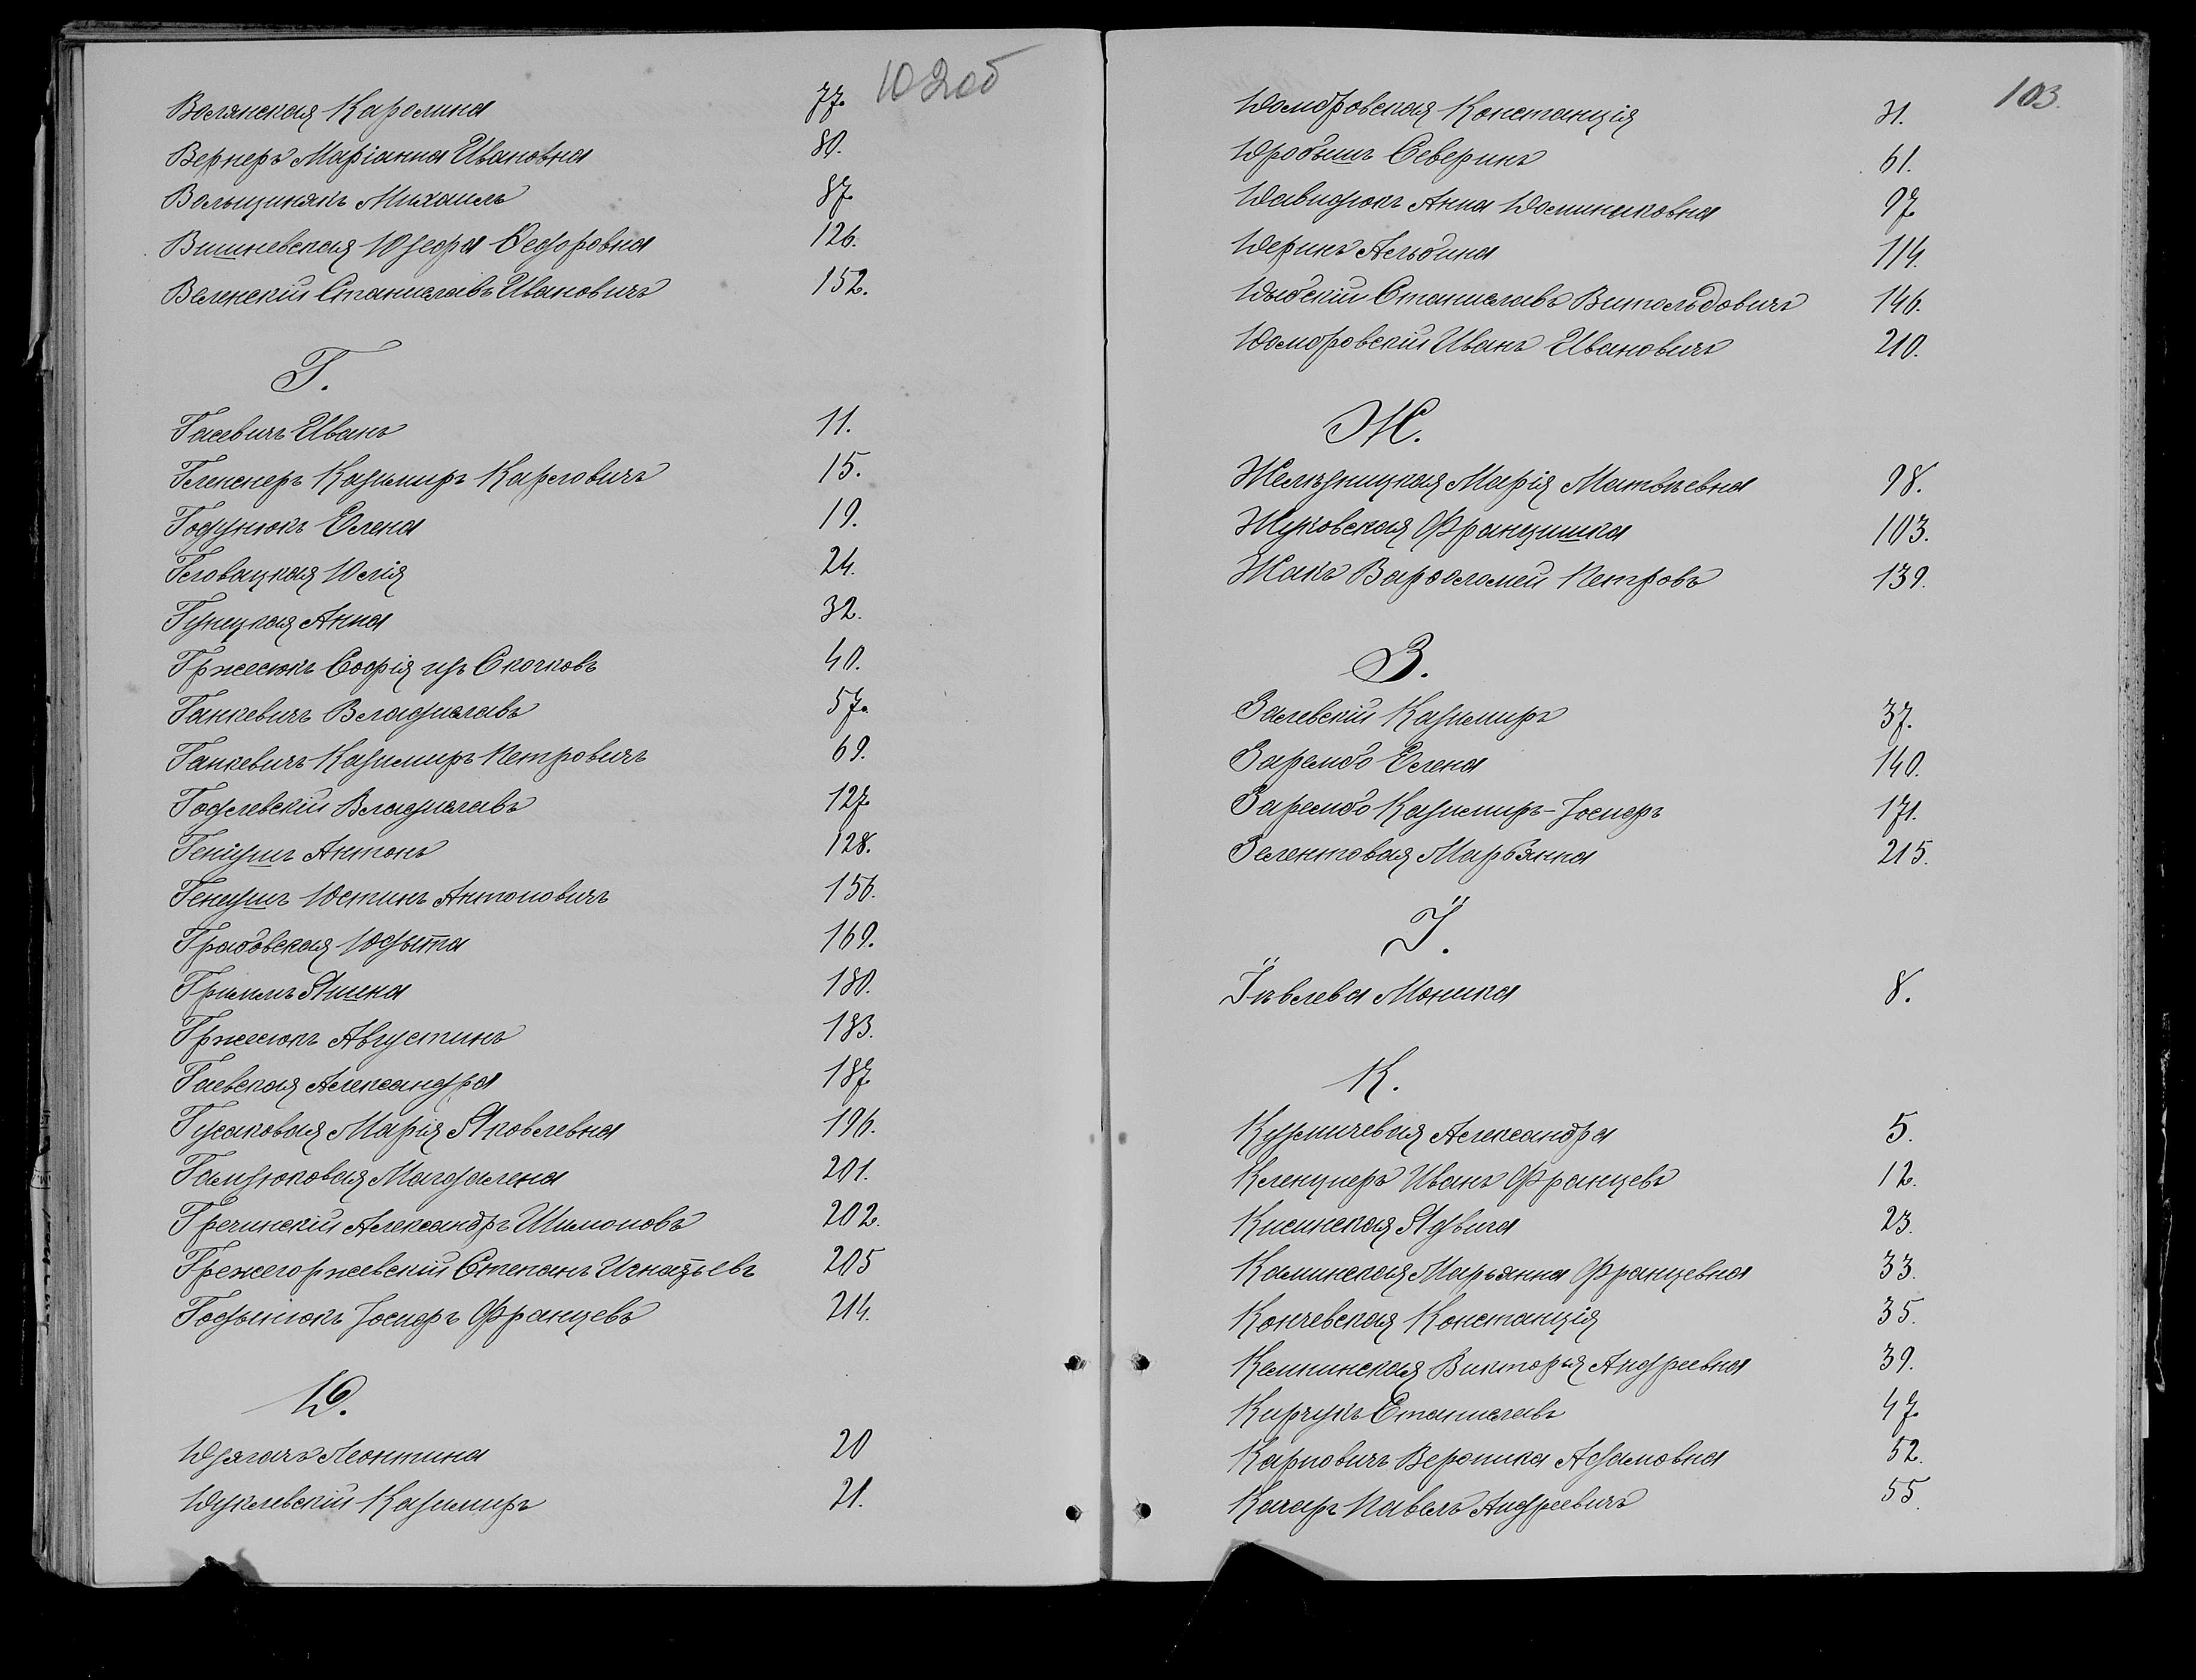 102 об
Волянская Каролина 77.
Вернеръ Маріанна Ивановна 80.
Вольщинякъ Михаилъ 87.
Вишневская Юзефа Федоровна 126.
Веленскій Станиславъ Ивановичъ 152.
Г.
Гасевичъ Иванъ 11.
Гекснеръ Казимиръ Карловичъ 15.
Годунюкъ Елена 19.
Головацкая Юлія 24.
Гунецкая Анна 32.
Гржесюкъ Софія изъ Скочковъ 40.
Ганкевичъ Владиславъ 57.
Ганкевичъ Казимиръ Петровичъ 69.
Годлевскій Владиславъ 127.
Геніушъ Антонъ 128.
Геніушъ Юстинъ Антоновичъ 156.
Грабовская Юдыта 169.
Гриммъ Янина 180.
Гржесюкъ Августинъ 183.
Гаевская Александра 187.
Гусаковая Марія Яковлевна 196.
Гамзюковая Магдалена 201.
Гречинскій Александръ Шимоновъ 202.
Грежегоржевскій Степанъ Игнатьевъ 205
Годынюкъ Іосифъ Францевъ 214.
Д.
Дзягачъ Леонтина 20
Дуклевскій Казимиръ 21.
103.
Домбровская Констанція 31.
Дробышъ Северинъ 61.
Давидюкъ Анна Доминиковна 97.
Деринъ Альбина 114.
Дыбскій Станиславъ Витольдовичъ 146.
Домбровскій Иванъ Ивановичъ 210.
Ж.
Желѣзницкая Марія Матвѣевна 98.
Жуковская Францишка 103.
Жакъ Варфоломей Петровъ 139.
З.
Залевскій Казимиръ 37.
Зарембо Елена 140.
Зарембо Казимиръ-Іосифъ 171.
Зелентовая Марьянна 215.
Ї.
Їевлева Моника 8.
К.
Кузмичевая Александра 5.
Кленцнеръ Иванъ Францевъ 12.
Кисинская Ядвига 23.
Каминская Марьянна Францевна 33.
Кончевская Констанція 35.
Кемпинская Викторья Андреевна 39.
Кирчукъ Станиславъ 47.
Карповичъ Вероника Адамовна 52.
Качаръ Павелъ Андреевичъ 55.